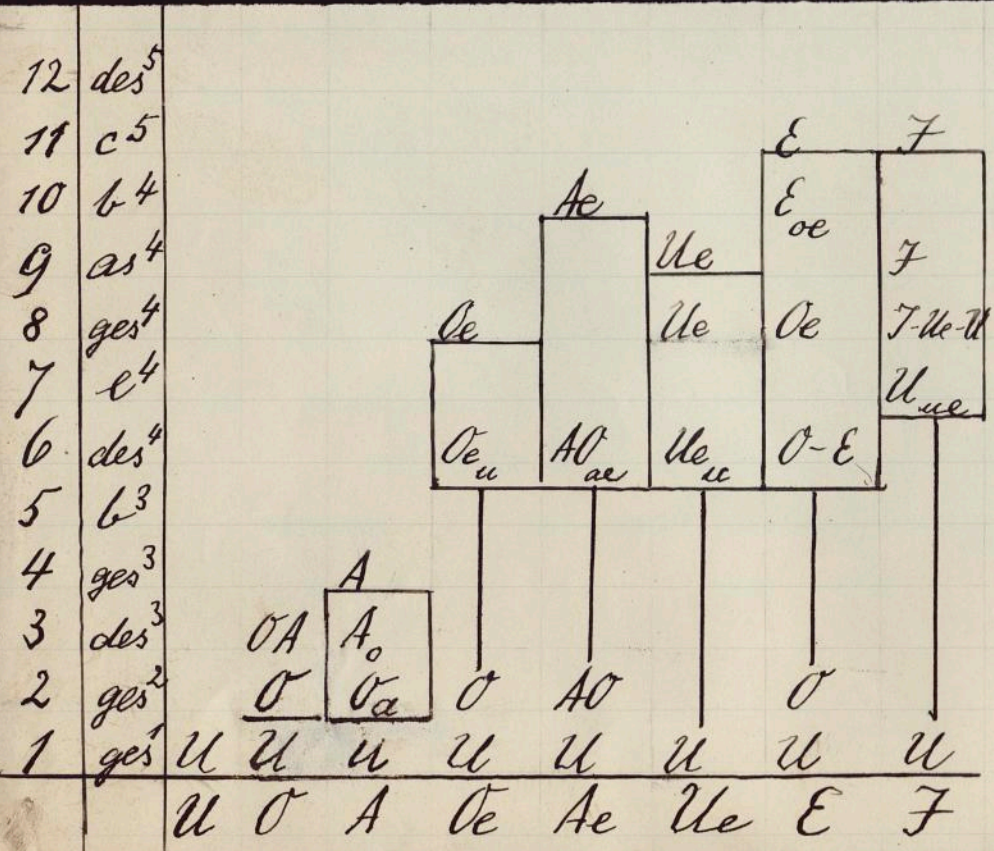 12 des⁵
11 c⁵ E J
10 b⁴ Ae E oe
9 as⁴ Ue J
8 ges⁴ Oe Ue Oe J-Ue-U
7 e⁴ U ue
6 des⁴ Oe u AO ae Ue u O-E
5 b³
4 ges³ A
3 des³ OA A o
2 ges² O O a O AO O
1 ges¹ U U U U U U U U
U O A Oe Ae Ue E J